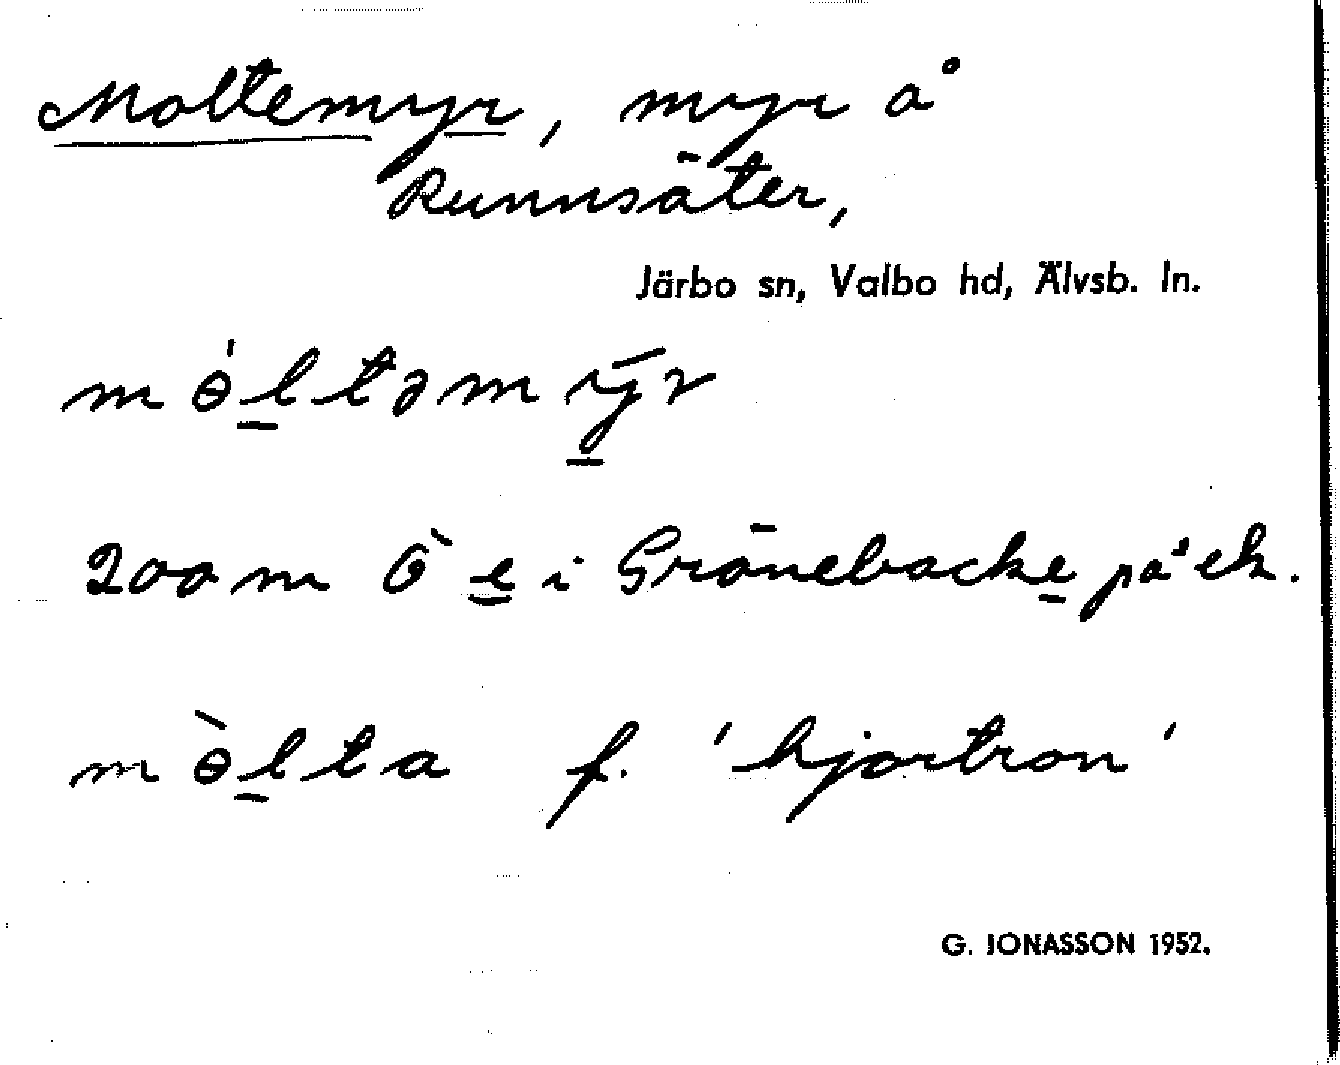 Moltemyr, myr å
Runnsäter,
Järbo sn, Valbo hd, Älvsb. ln.
mɵ́l̠təmȳ̠r
200 m Ö e i Grönebacke på ek.
mɵ̀l̠ta f. 'hjortron'
G. JONASSON 1952.